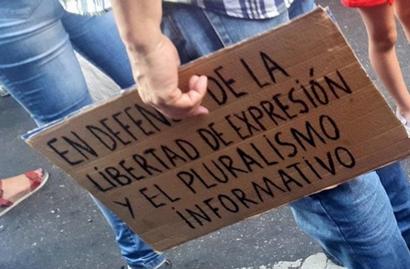 EN DEFEN DE LA
LIBERTAD DE EXPRESIÓN
Y EL PLURALISMO
INFORMATIVO